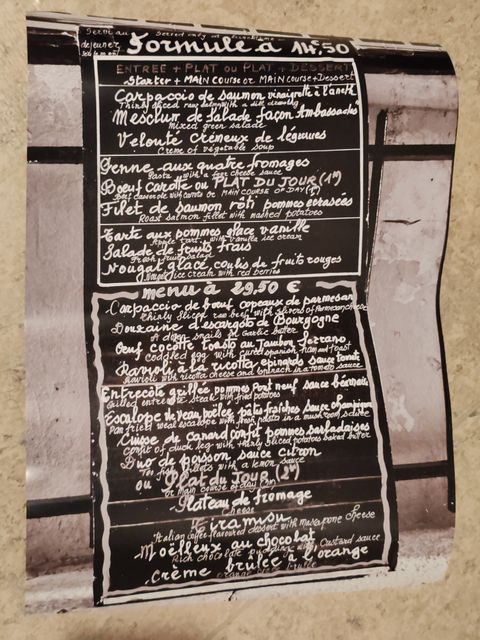 Servi au
déjeuner
Served only at
Formule à 14,50
ENTREE + PLAT OU PLAT + DESSERT
Starter + MAIN COURSE OR MAIN COURSE + DESSERT
Carpaccio de saumon vinaigrette à l'aneth
Thinly sliced raw salmon with a dill dressing
Mesclun de Salade façon Ambassades
mixed green salade
Velouté Crémeux de légumes
Creme of vegetable soup
Penne aux quatre fromages
Pasta with a four cheese sauce
Bœuf Carotte ou PLAT DU JOUR (1*)
Beef casserole with carrots or MAIN COURSE OF DAY (1*)
Filet de saumon rôti pommes écrasées
Roast salmon fillet with mashed potatoes
Tarte aux pommes glace vanille
Apple tart with vanilla ice cream
Salade de fruits frais
Fresh fruit salad
Nougat glacé, coulis de fruits rouges
Nougat ice cream with red berries
menu à 29,50 €
Carpaccio de bœuf copeaux de parmesan
Thinly sliced raw beef with slivers of Parmesan cheese
Douzaine d'escargots de Bourgogne
A dozen snails in Garlic butter
Oeuf cocotte Toasts au Jambon Serrano
Coddled egg with cured spanish ham and toast
Ravioli à la ricotta épinards sauce tomate
Ravioli with ricotta cheese and spinach in a tomato sauce
Entrecôte grillée pommes Pont neuf sauce béarnaise
Grilled entrecote steak with fried potatoes
Escalope de veau poêlée, pâtes fraîches sauce champignon
Pan fried veal escalope with fresh pasta in a mushroom sauce
Cuisse de canard confit pommes sarladaises
Confit of duck leg with thinly sliced potatoes baked butter
Duo de poisson sauce citron
fish fillets with a lemon sauce
ou Plat du Jour (1*)
or Main course of day
Plateau de fromage
Cheese
Tiramisu
Italian coffee-flavoured dessert with mascarpone cheese
Moëlleux au chocolat
Rich chocolate pudding with Custard sauce
Crème brulée à l'orange
Orange crème brulée